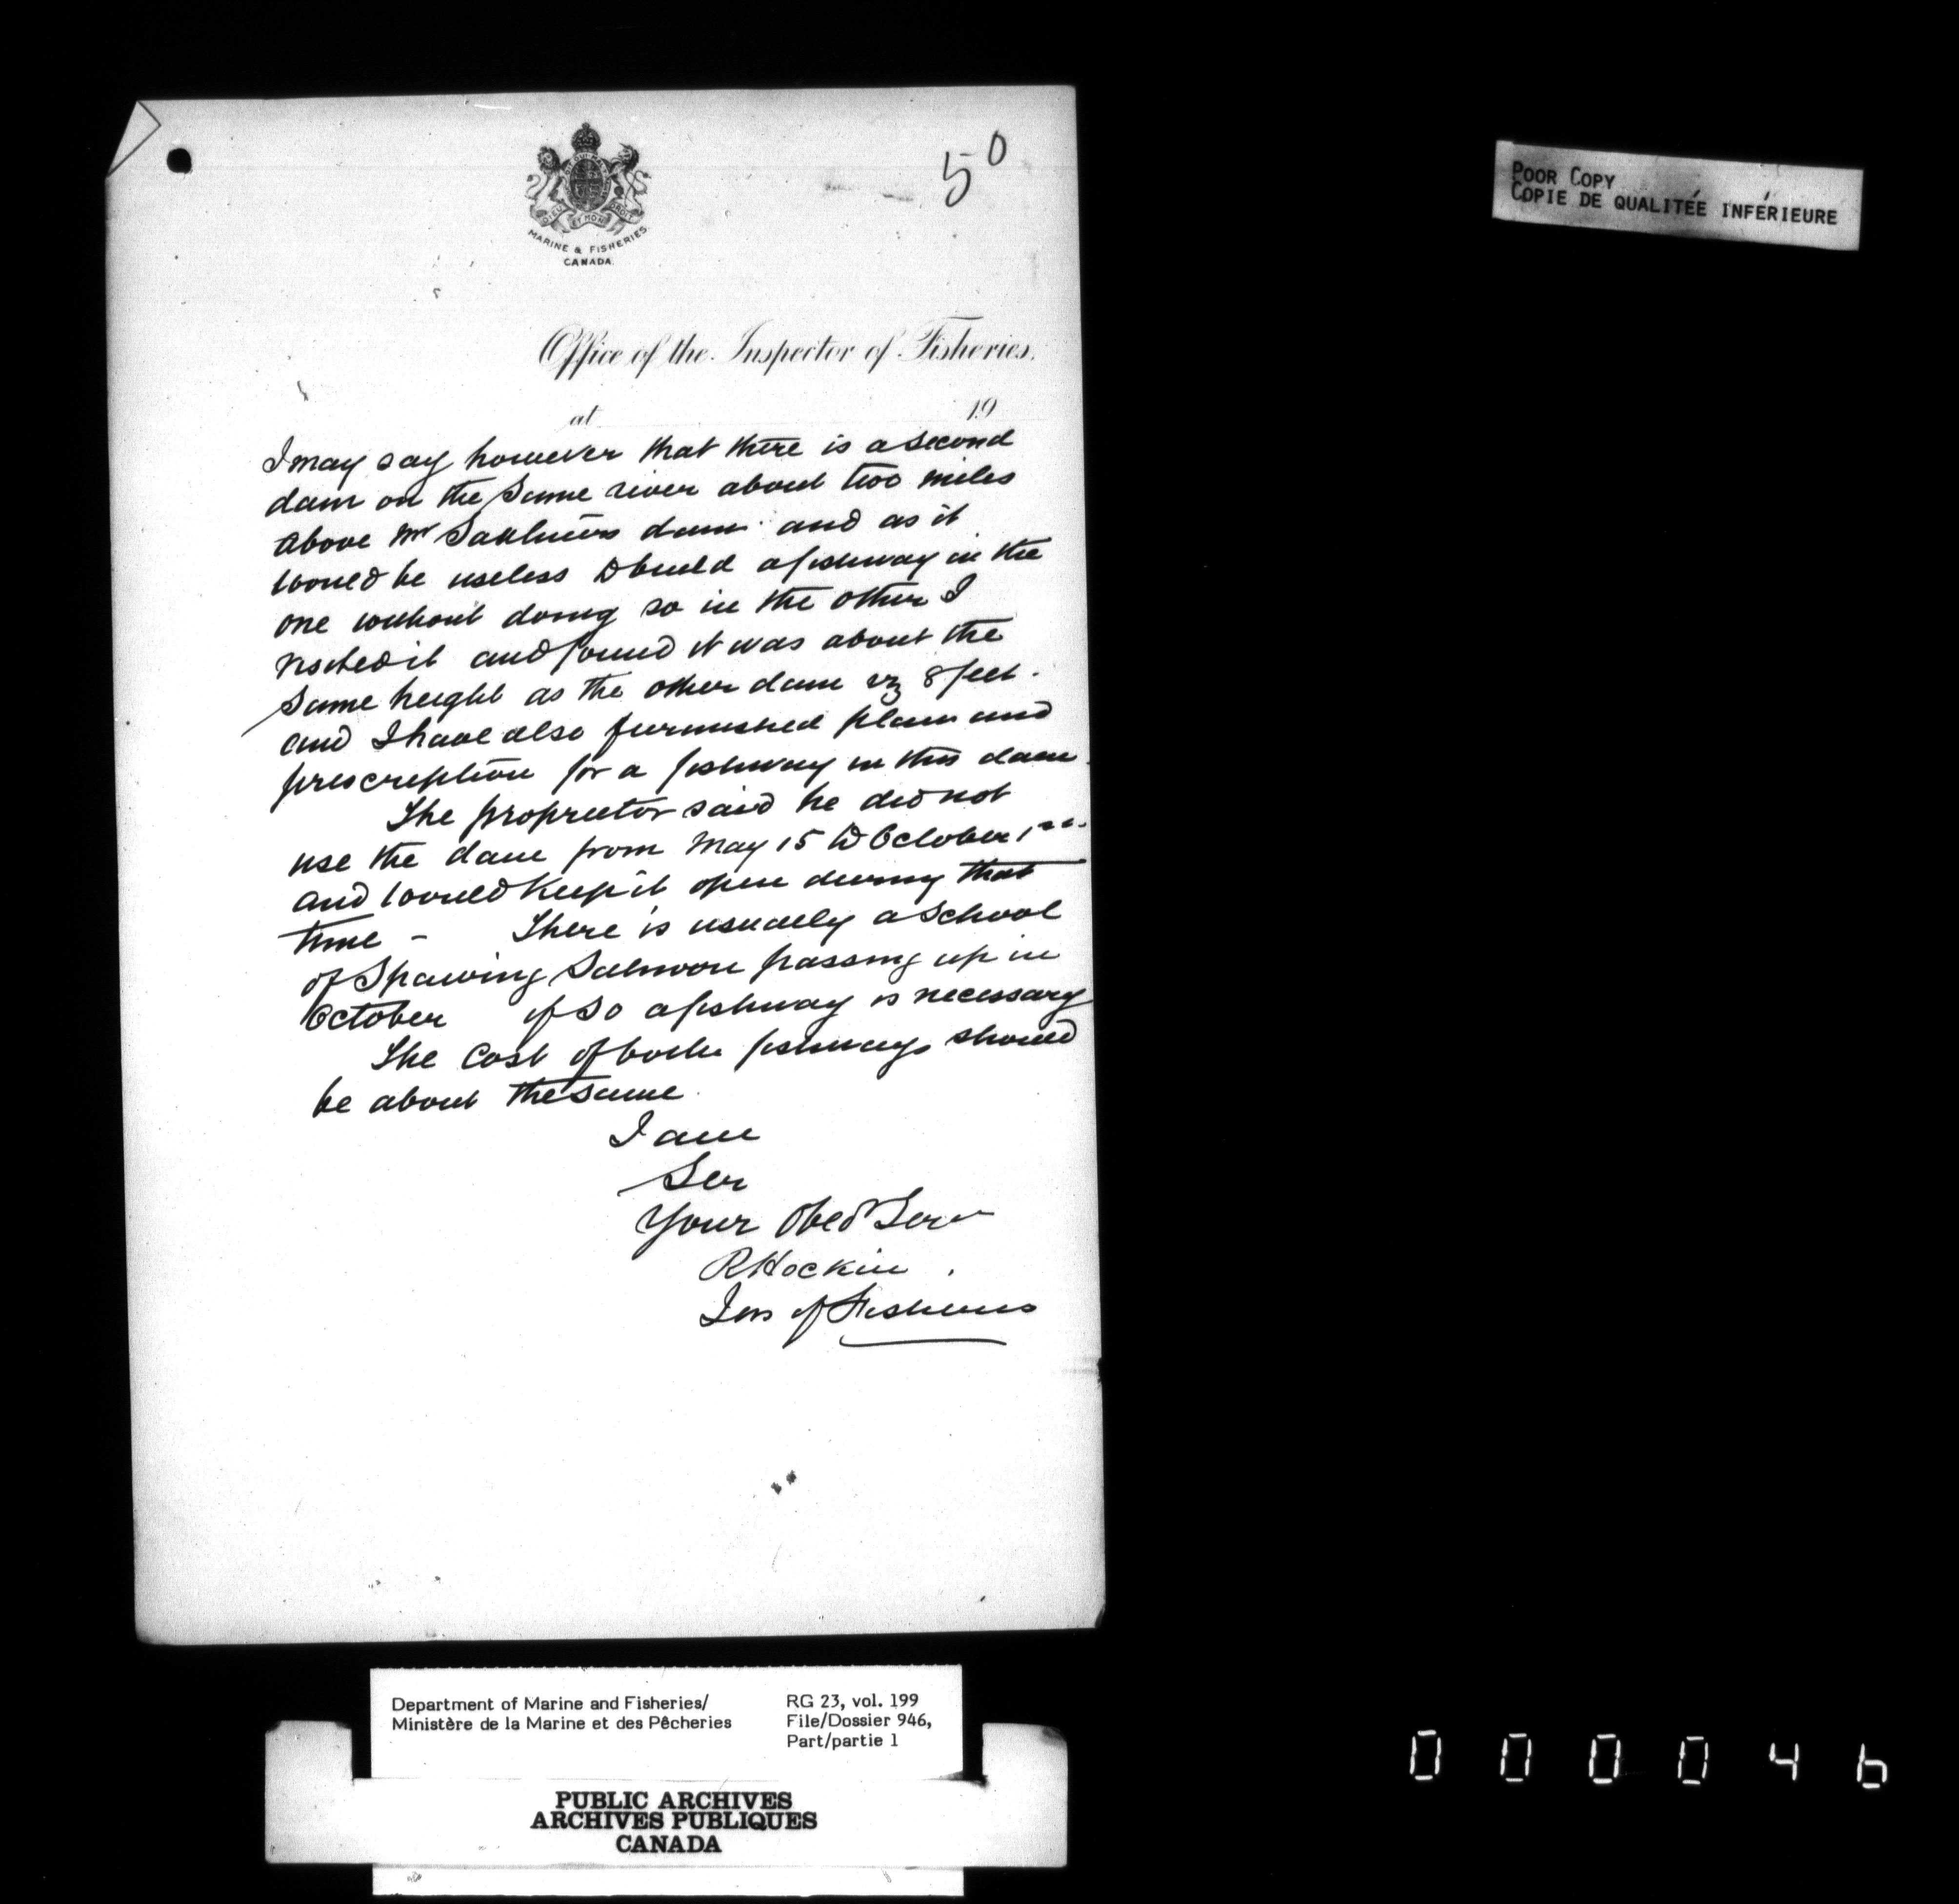 50
DIEU ET MON DROIT
MARINE & FISHERIES
CANADA.
Office of the Inspector of Fisheries,
at 19
I may say however that there is a second
dam on the same river about two miles
above Mr Saulniers dam and as it
would be useless to build a fishway in the
one without doing so in the other I
visited it and found it was about the
same height as the other dam viz 8 feet.
and I have also furnished plan and
prescription for a fishway in this dam.
The proprietor said he did not
use the dam from May 15 to October 1st
and would keep it open during that
time - There is usually a school
of Spawing Salmon passing up in
October if so a fishway is necessary
The Cost of both fishways should
be about the same.
I am
Sir
Your Obed Serv
R Hockin.
Ins of Fisheries
POOR COPY
COPIE DE QUALITÉE INFÉRIEURE
Department of Marine and Fisheries/
Ministère de la Marine et des Pêcheries
RG 23, vol. 199
File/Dossier 946,
Part/partie 1
PUBLIC ARCHIVES
ARCHIVES PUBLIQUES
CANADA
000046